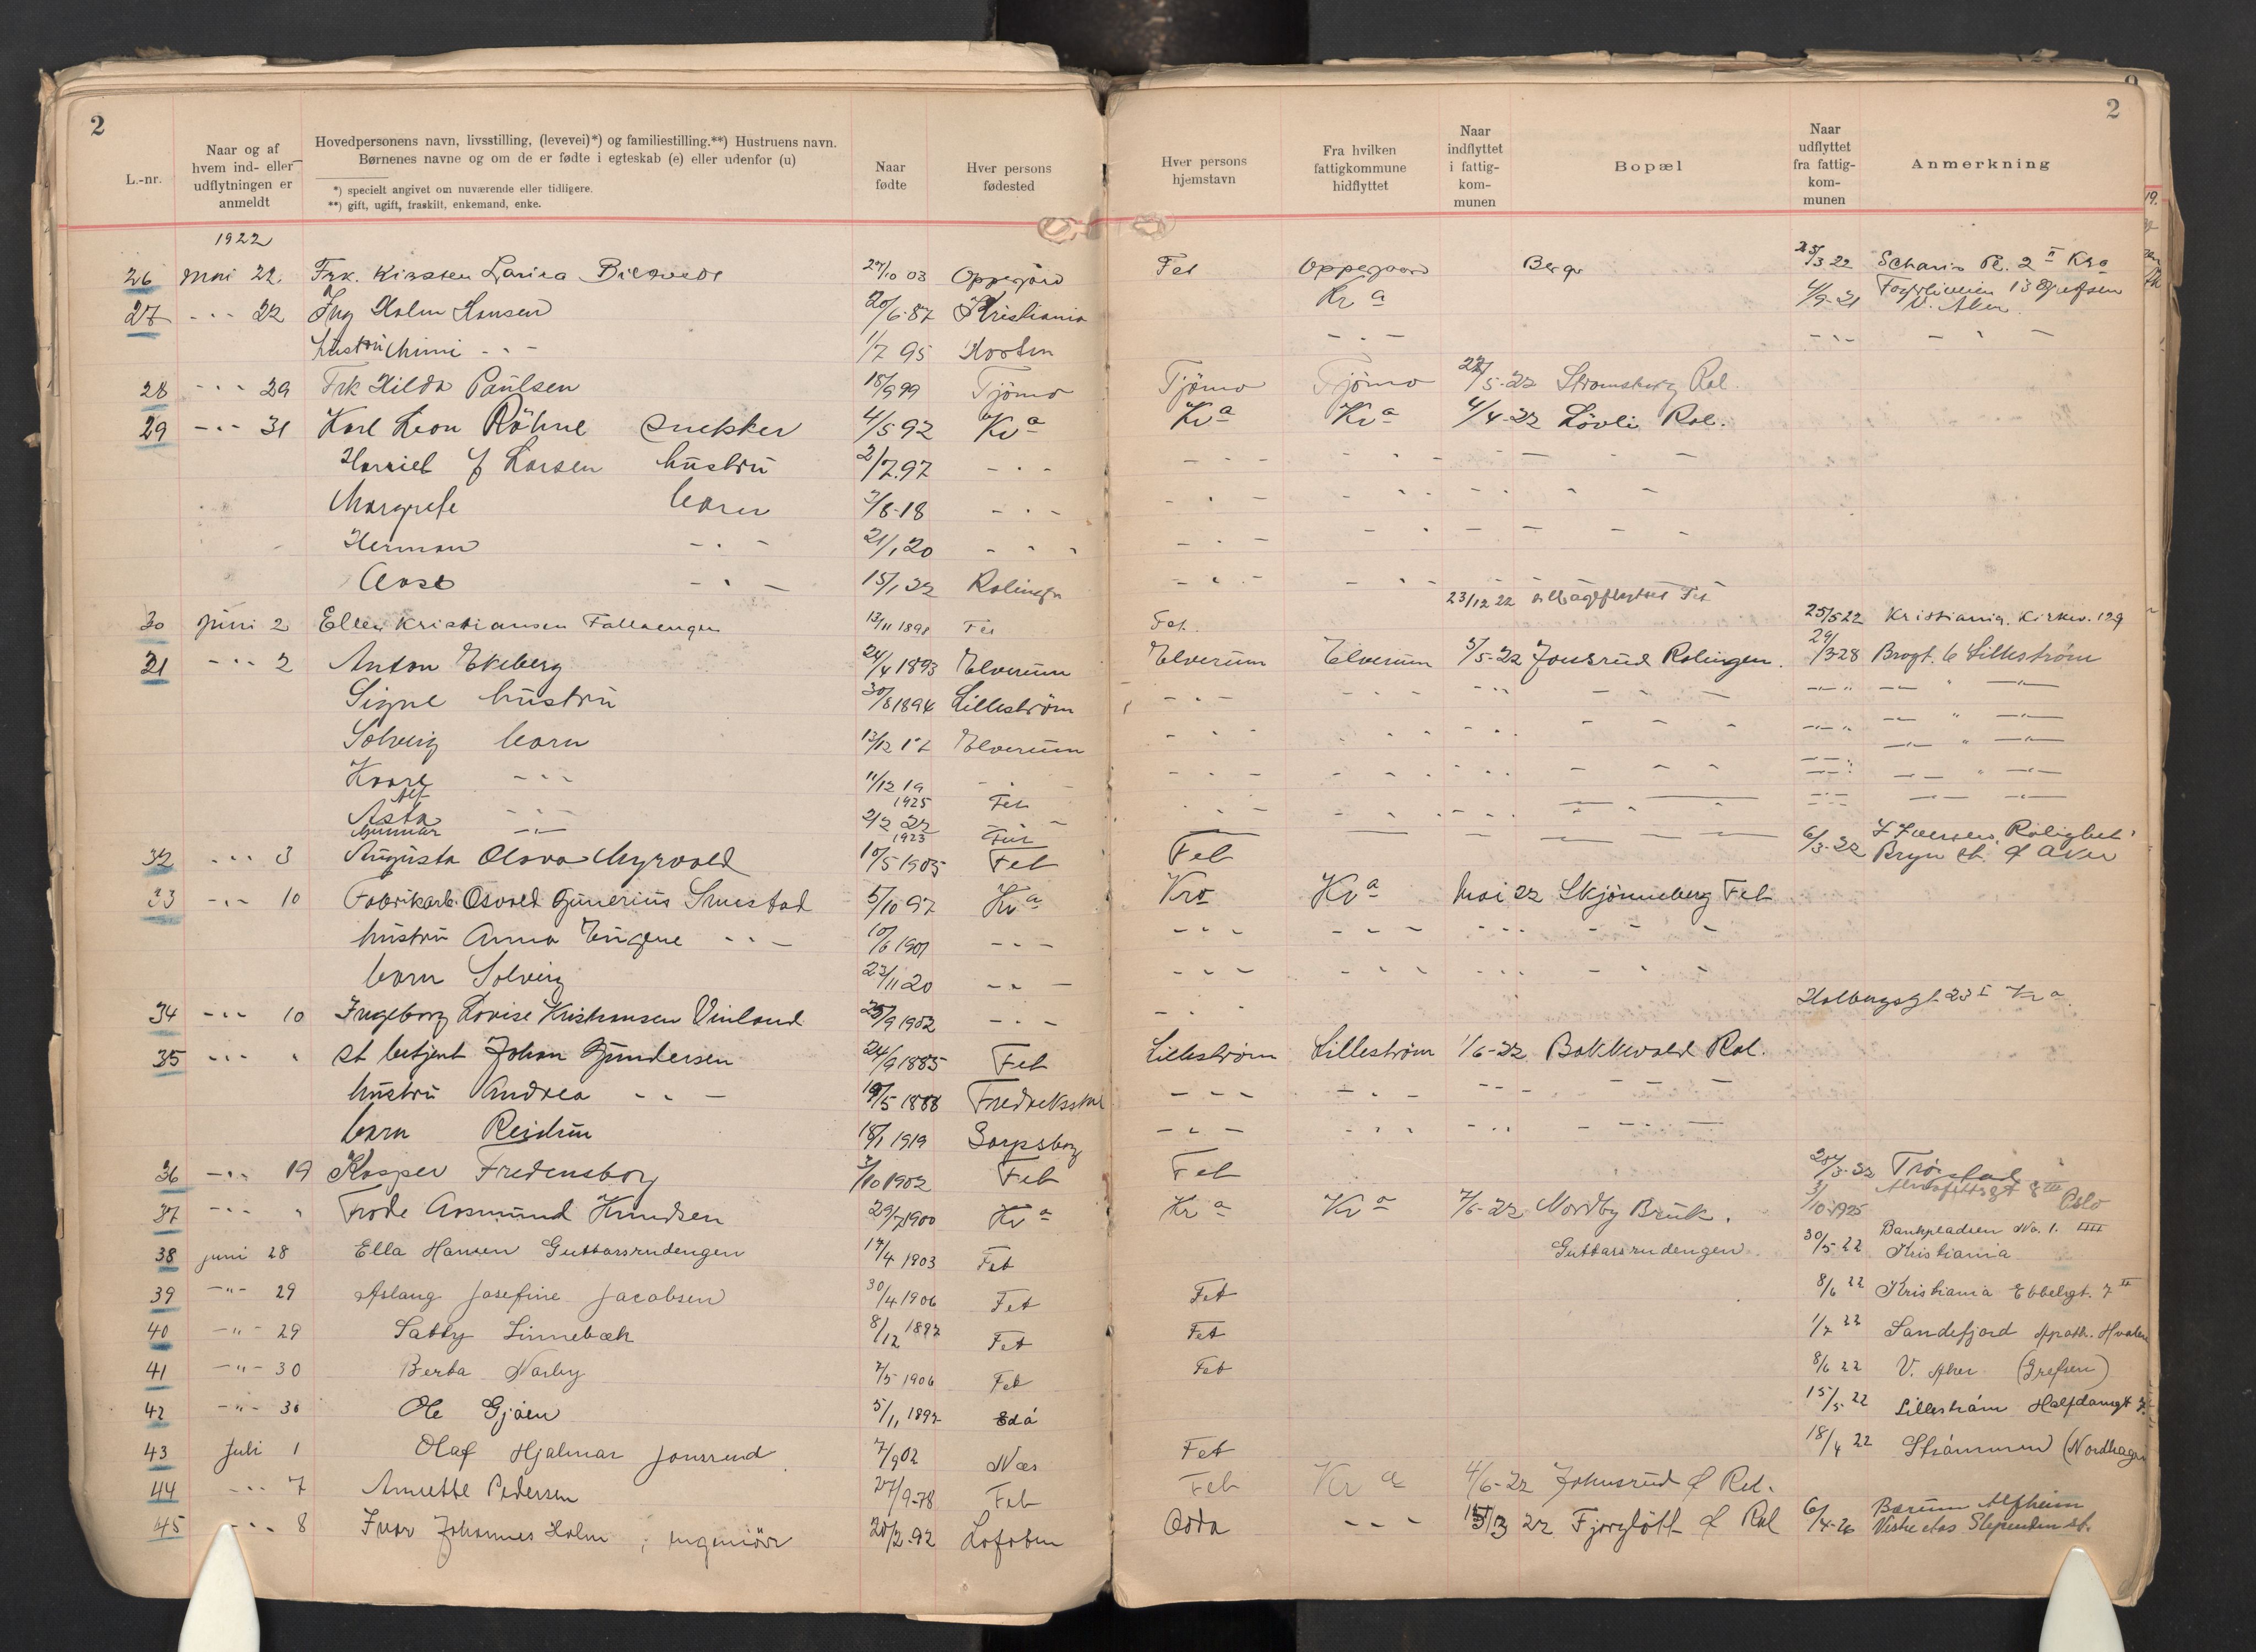 2
L.-nr.
Naar og af hvem ind- eller udflytningen er anmeldt
Hovedpersonens navn, livsstilling, (levevei)*) og familiestilling.**) Hustruens navn.
Børnenes navne og om de er fødte i egteskab (e) eller udenfor (u)
*) specielt angivet om nuværende eller tidligere.
**) gift, ugift, fraskilt, enkemand, enke.
Naar fødte
Hver persons fødested
Hver persons hjemstavn
Fra hvilken fattigkommune hidflyttet
Naar indflyttet i fattig-kom-munen
Bopæl
Naar udflyttet fra fattig-kom-munen
Anmerkning
2
1922
26 Mai 22. Frk. Kirsten 27/10 03 Oppegård Fet Oppegaard Berg 25/3 22 2 II Kra
27 - " - 22 Ing Holm Hansen 20/6-87 Kristiania Kr a 4/9-21 13 Grefsen V. Aker.
hustru Mimi - " - 1/7 95 Horten - " - - " - - " -
28 - " - 29 Frk Hilda Paulsen 18/9 99 Tjömo Tjömo Tjömo 22/5-22 Strømsberg Ral.
29 - " - 31 Karl Leon Röhne Snekker 4/5 92 Kr a Kr a Kr a 4/4-22 Lövli Ral.
Harriet f Larsen hustru 2/7.97 - " - - " - - " - - " -
Margrete barn 7/8-18 - " - - " - - " - - " -
Herman - " - 21/1 20 - " - - " - - " - - " -
Aase - " - 15/1 22 Ralingen - " - - " -
23/12 22 tilbageflyttet Fet
30 Juni 2 Ellen Kristiansen Fallaengen 13/11 1898 Fet Fet. 25/5 22 Kristiania. Kirkev. 129
31 - " - 2 Anton Ekeberg 24/4 1893 Elverum Elverum Elverum 5/5-22 Jonsrud Ralingen. 29/3-28 Brogt. 6 Lilleström
Signe hustru 30/8 1894 Lilleström - " - - " - - " - - " -
Solveig barn 13/12 17 Elverum - " - - " - - " - - " -
Kaare - " - 11/12 19 - " - - " - - " - - " -
Alf 1925 Fet
Asta - " - 2/2 22 - " - - " - - " -
Gunnar - " - 1923 Fet
32 - " - 3 Augusta Olava Myrvold 10/5 1905 Fet Fet 6/3-22 Rolighet Bryn st. Ø Aker
33 - " - 10 Fabrikarb. Osvald Gunerius Smestad 5/10 97 Kr a Kra Kr a Mai 22 Skjönneberg Fet
hustru Anna Eugene - " - 10/6 1901 - " - - " - - " - - " -
barn Solveig 23/11 20 - " - - " - - " - - " -
34 - " - 10 Ingeborg Lovise Kristiansen Vinland 25/9 1902 - " - - " - Holbergsgt 23 I Kr a
35 - " - " st betjent Johan Gundersen 24/9 1885 Fet Lilleström Lilleström 1/6-22 Bakkevold Ral.
hustru Andrea - " - 19/5 1888 Fredriksstad - " - - " - - " - - " -
barn Reidun 18/1 1919 Sarpsborg - " - - " - - " - - " -
36 - " - 19 Kasper Fredensborg 3/10 1902 Fet Fet 28/3-22 Tröstad
37 - " - " Frode Aasmund Knudsen 29/7 1900 Kr a Kr a Kr a 7/6-22 Nordby Bruk. 3/10-1925 8 III Oslo
38 juni 28 Ella Hansen Guttarsrudengen 17/4 1903 Fet Guttarsrudengen 30/5 22 Bankpladsen No. 1. IIII Kristiania
39 - " - 29 Aslaug Josefine Jacobsen 30/4 1906 Fet Fet 8/6 22 Kristiania Ebbelsgt. 7 II
40 - " - 29 Sally Linnebæk 8/12 1892 Fet Fet 1/7 22 Sandefjord Apoth. Hvalen
41 - " - 30 Berta Narby 7/5 1906 Fet Fet 8/6 22 V. Aker (Grefsen)
42 - " - 30 Ole Gjöen 5/11 1892 15/5 22 Lilleström Halfdansgt 7.
43 Juli 1 Olaf Hjalmar Jonsrud 7/9 02 Næs Fet 18/4 22 Strömmen (Nordhagen
44 - " - 7 Annette Pedersen 27/9-78 Fet Fet Kr a 4/6-22 Johnsrud Ø Ral.
45 - " - 8 Ivar Johannes Holm, ingeniör 20/2-92 Lofoten Odda - " - 15/3 22 Fjorglött Ø Ral 6/4-26 Bærum Alfheim Vestre etas Slependen st.